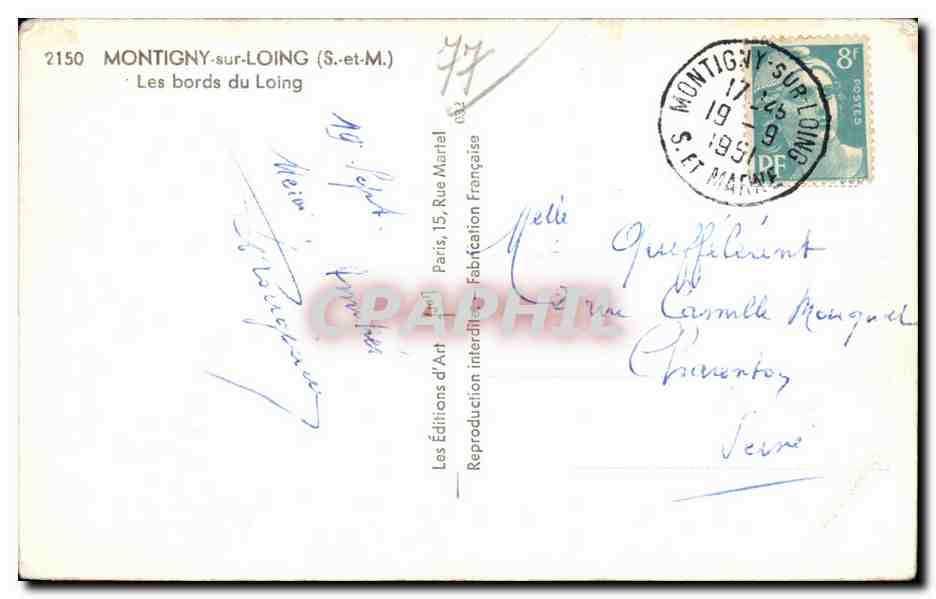 2150 MONTIGNY-sur-LOING (S.-et-M.)
Les bords du Loing
77
MONTIGNY-SUR-LOING
17 45
19 - 9
1951
S. ET MARNE
8F
POSTES
RF
19 Sept.
Amitiés
Les Éditions d'Art Paris, 15, Rue Martel
Reproduction interdite - Fabrication Française
Melle Quefféléant
rue Camille Mouquet
Charenton
Seine
CPAPHIL